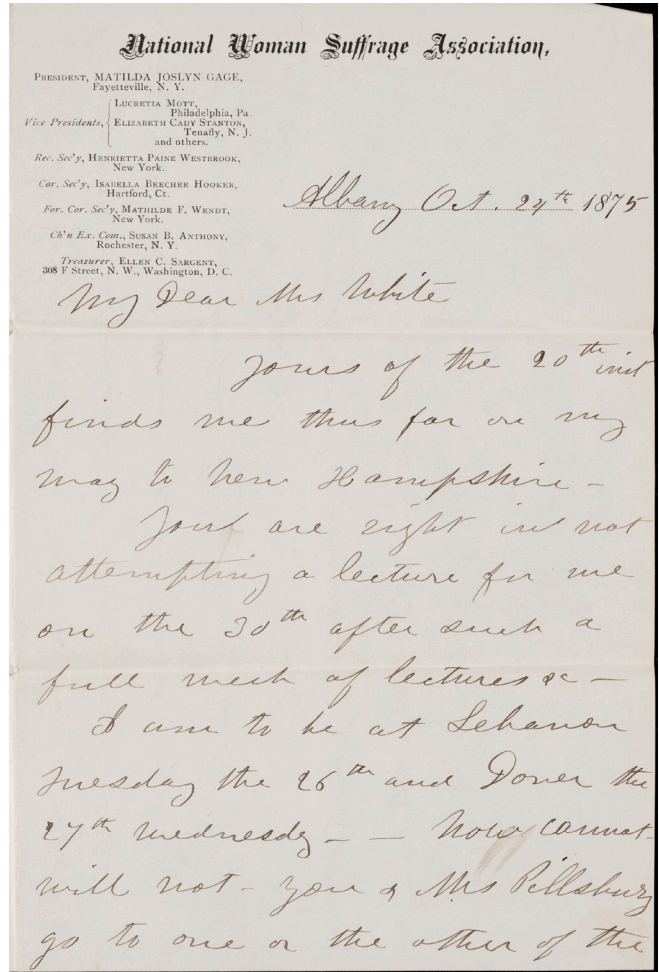 National Woman Suffrage Association,
PRESIDENT, MATILDA JOSLYN GAGE,
Fayetteville, N. Y.
LUCRETIA MOTT,
Philadelphia, Pa.
Vice Presidents, ELIZABETH CADY STANTON,
Tenafly, N. J.
and others.
Rec. Sec'y, HENRIETTA PAINE WESTBROOK,
New York.
Cor. Sec'y, ISABELLA BEECHER HOOKER,
Hartford, Ct.
For. Cor. Sec'y, MATHILDE F. WENDT,
New York.
Ch'n Ex. Com., SUSAN B. ANTHONY,
Rochester, N. Y.
Treasurer, ELLEN C. SARGENT,
308 F Street, N. W., Washington, D. C.
Albany Oct. 24th 1875
My Dear Mrs White
Yours of the 20th inst
finds me thus far on my
way to New Hampshire -
You are right in not
attempting a lecture for me
on the 30th after such a
full week of lectures &c -
I am to be at Lebanon
Tuesday the 26th and Dover the
27th Wednesdy - - Now cannot -
will not - you & Mrs Pillsbury
go to one or the other of the